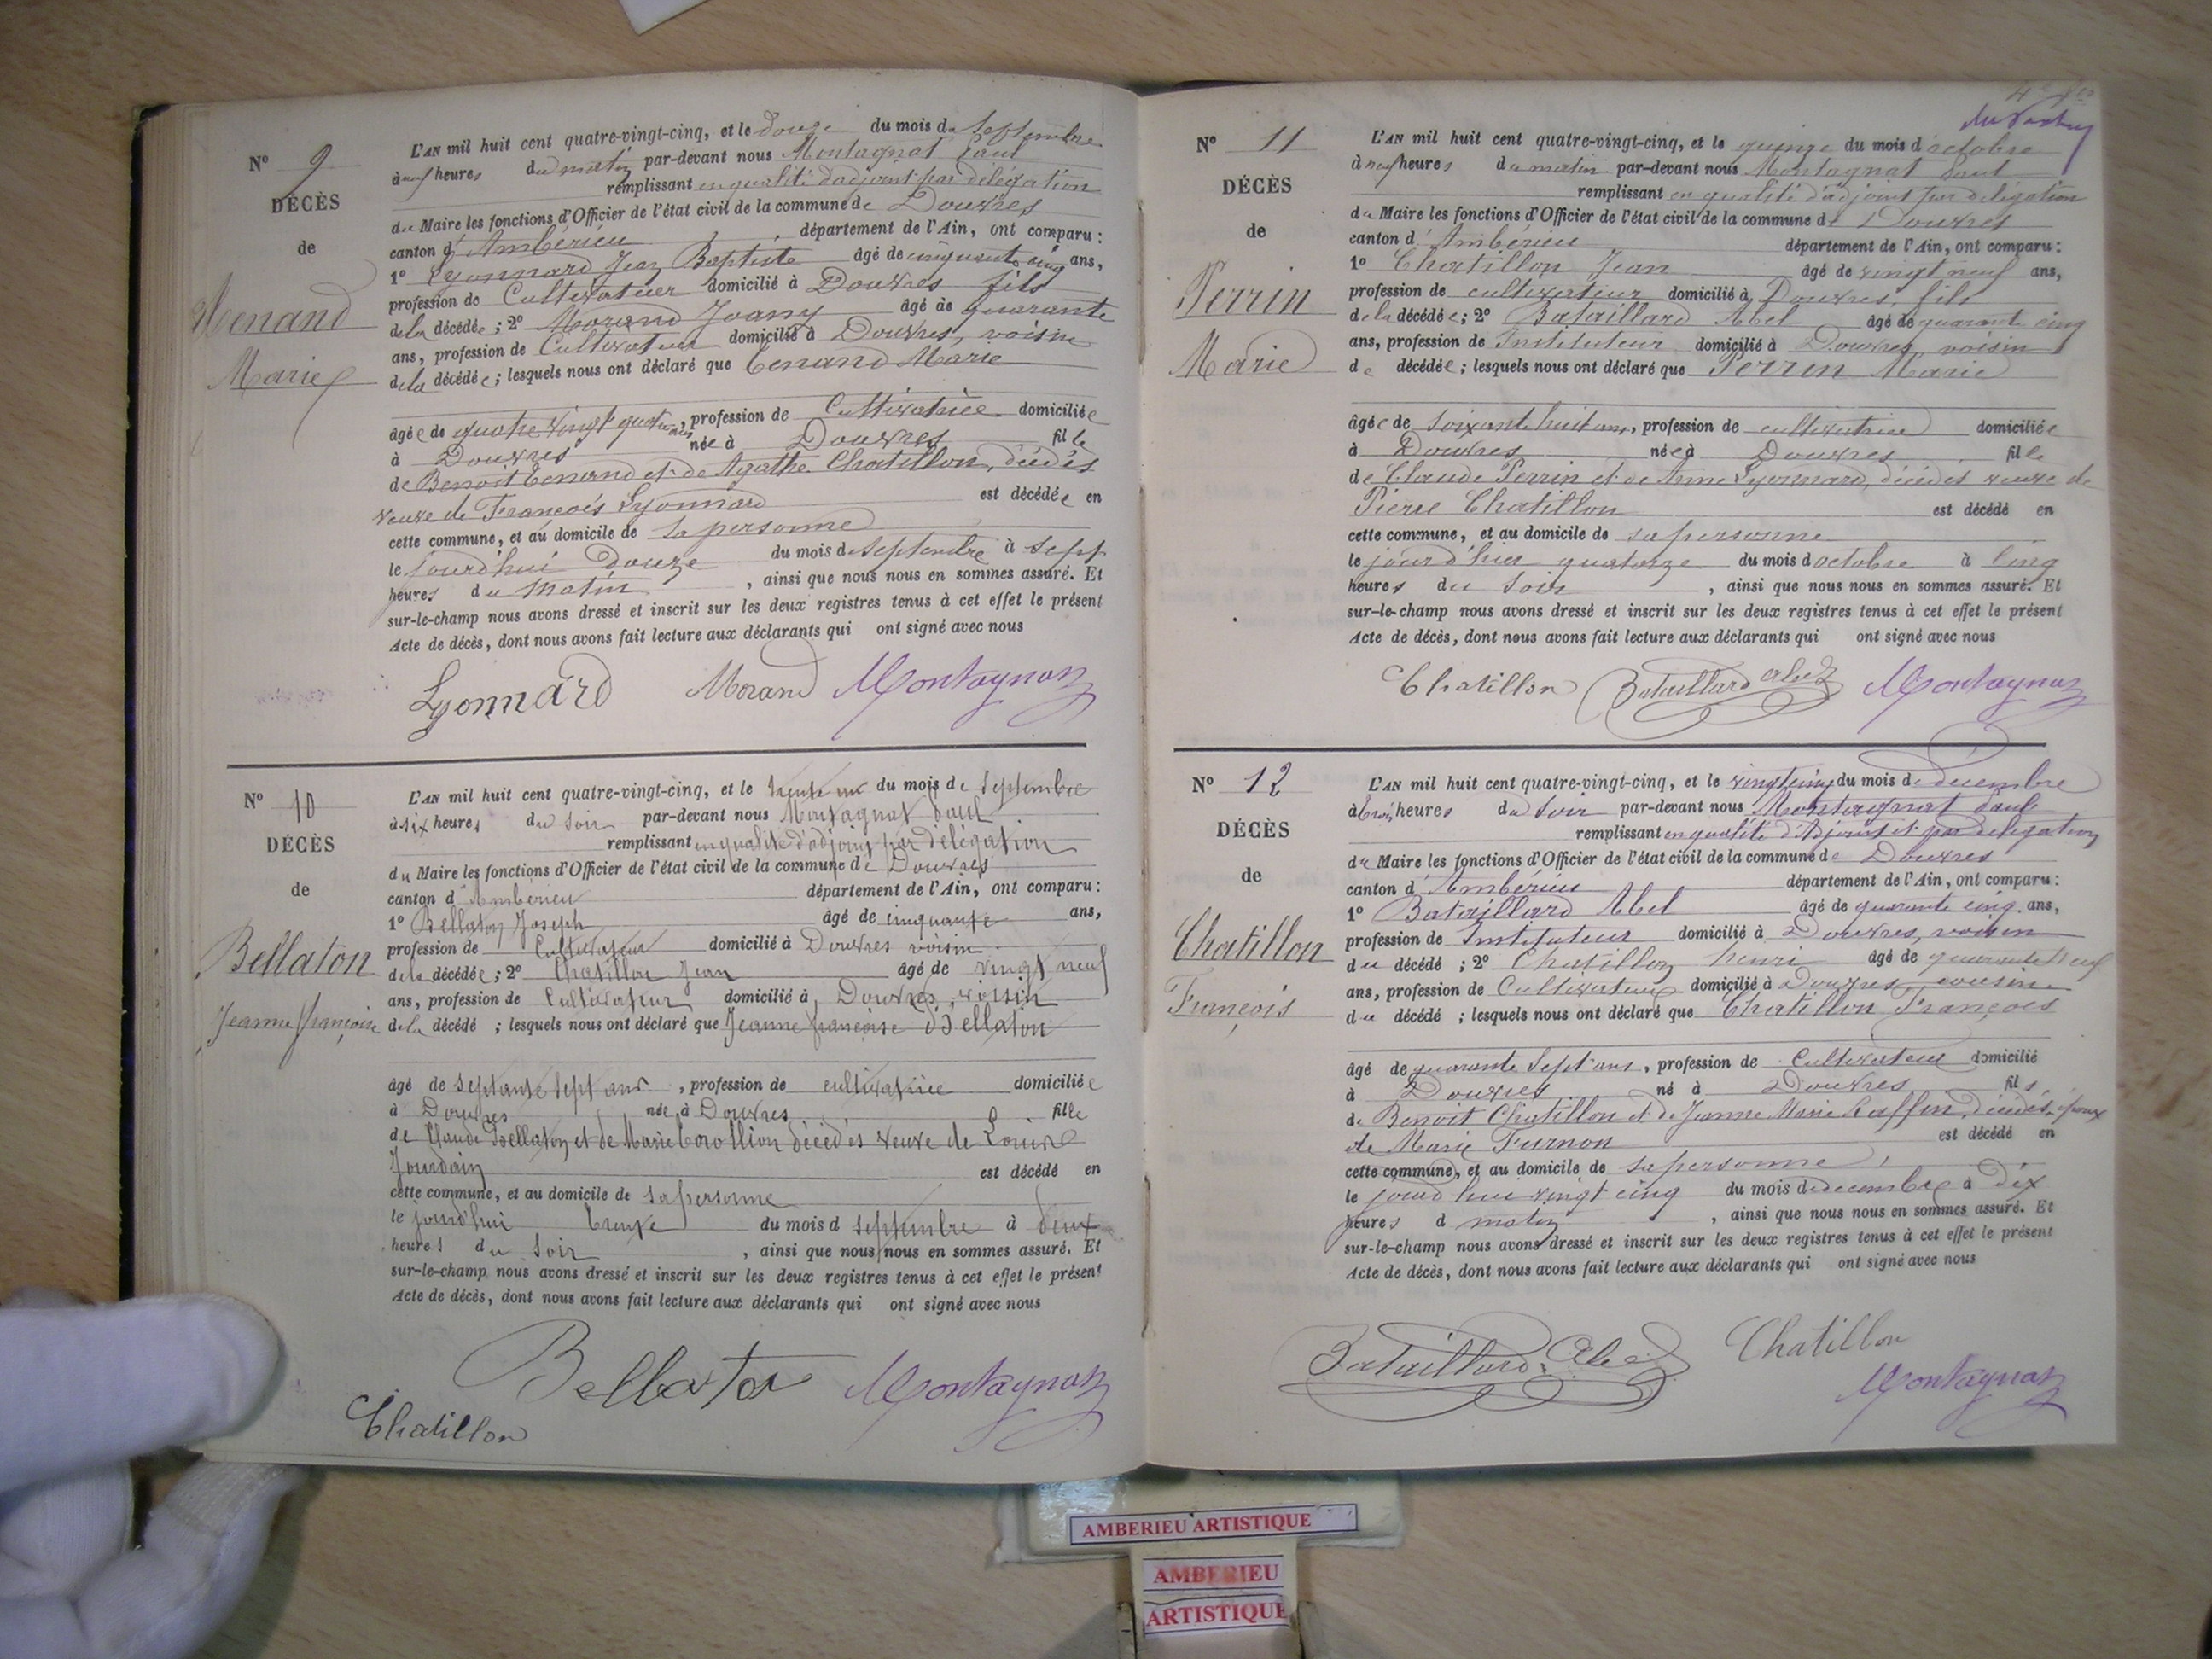 N° 9
DÉCÈS
de
Marie
L'AN mil huit cent quatre-vingt-cinq, et le douze du mois de Septembre
à neuf heures du matin par-devant nous Montagnat Paul
remplissant en qualité d'adjoint par délégation
du Maire les fonctions d'Officier de l'état civil de la commune de Douvres
canton d'Ambérieu département de l'Ain, ont comparu :
1° Lyonnard Jean Baptiste âgé de cinquante cinq ans,
profession de Cultivateur domicilié à Douvres fils
de la décédée ; 2° Morand Joany âgé de quarante
ans, profession de Cultivateur domicilié à Douvres, voisin
de la décédée ; lesquels nous ont déclaré que Marie
âgée de quatre vingt quatre ans, profession de Cultivatrice domiciliée
à Douvres née à Douvres fille
de Benoit et de Agathe Chatillon, décédés
veuve de François Lyonnard est décédée en
cette commune, et au domicile de sa personne
le jourd'hui douze du mois de septembre à sept
heures du matin , ainsi que nous nous en sommes assuré. Et
sur-le-champ nous avons dressé et inscrit sur les deux registres tenus à cet effet le présent
Acte de décès, dont nous avons fait lecture aux déclarants qui ont signé avec nous
Lyonnard Morand Montagnat
N° 10
DÉCÈS
de
Bellaton
Jeanne françoise
L'AN mil huit cent quatre-vingt-cinq, et le du mois de Septembre
à six heures du soir par-devant nous Montagnat Paul
remplissant en qualité d'adjoint par délégation
du Maire les fonctions d'Officier de l'état civil de la commune de Douvres
canton d'Ambérieu département de l'Ain, ont comparu :
1° Bellaton Joseph âgé de cinquante ans,
profession de Cultivateur domicilié à Douvres voisin
de la décédée ; 2° Chatillon Jean âgé de vingt neuf
ans, profession de Cultivateur domicilié à Douvres, voisin
de la décédé ; lesquels nous ont déclaré que Jeanne françoise Bellaton
âgé de septante sept ans , profession de cultivatrice domiciliée
à Douvres née à Douvres fille
de Claude Bellaton et de Marie décédés veuve de Louis
Jourdain est décédé en
cette commune, et au domicile de sa personne
le jourd'hui trente du mois d septembre à deux
heures du soir , ainsi que nous nous en sommes assuré. Et
sur-le-champ nous avons dressé et inscrit sur les deux registres tenus à cet effet le présent
Acte de décès, dont nous avons fait lecture aux déclarants qui ont signé avec nous
Bellaton Montagnat
Chatillon
N° 11
DÉCÈS
de
Perrin
Marie
L'AN mil huit cent quatre-vingt-cinq, et le quinze du mois d'octobre
à neuf heures du matin par-devant nous Montagnat Paul
remplissant en qualité d'adjoint par délégation
du Maire les fonctions d'Officier de l'état civil de la commune de Douvres
canton d'Ambérieu département de l'Ain, ont comparu :
1° Chatillon Jean âgé de vingt neuf ans,
profession de cultivateur domicilié à Douvres, fils
de la décédée ; 2° Bataillard Abel âgé de quarante cinq
ans, profession de Instituteur domicilié à Douvres voisin
de décédée ; lesquels nous ont déclaré que Perrin Marie
âgée de soixante huit ans, profession de cultivatrice domiciliée
à Douvres née à Douvres fille
de Claude Perrin et de Anne Lyonnard, décédés veuve de
Pierre Chatillon est décédé en
cette commune, et au domicile de sa personne
le jour d'hier quatorze du mois d octobre à cinq
heures du soir , ainsi que nous nous en sommes assuré. Et
sur-le-champ nous avons dressé et inscrit sur les deux registres tenus à cet effet le présent
Acte de décès, dont nous avons fait lecture aux déclarants qui ont signé avec nous
Chatillon Bataillard Abel Montagnat
N° 12
DÉCÈS
de
Chatillon
François
L'AN mil huit cent quatre-vingt-cinq, et le vingt cinq du mois de décembre
à trois heures du soir par-devant nous Montagnat Paul
remplissant en qualité d'Adjoint et par délégation
du Maire les fonctions d'Officier de l'état civil de la commune de Douvres
canton d'Ambérieu département de l'Ain, ont comparu :
1° Bataillard Abel âgé de quarante cinq ans,
profession de Instituteur domicilié à Douvres, voisin
du décédé ; 2° Chatillon henri âgé de quarante neuf
ans, profession de Cultivateur domicilié à Douvres, cousin
du décédé ; lesquels nous ont déclaré que Chatillon François
âgé de quarante sept ans, profession de Cultivateur domicilié
à Douvres né à Douvres fils
de Benoit Chatillon et de Jeanne Marie décédés, époux
de Marie Furnon est décédé en
cette commune, et au domicile de sa personne
le jourd'hui vingt cinq du mois de décembre à dix
heures d matin , ainsi que nous nous en sommes assuré. Et
sur-le-champ nous avons dressé et inscrit sur les deux registres tenus à cet effet le présent
Acte de décès, dont nous avons fait lecture aux déclarants qui ont signé avec nous
Bataillard Abel Chatillon
Montagnat
AMBERIEU ARTISTIQUE
AMBERIEU
ARTISTIQUE